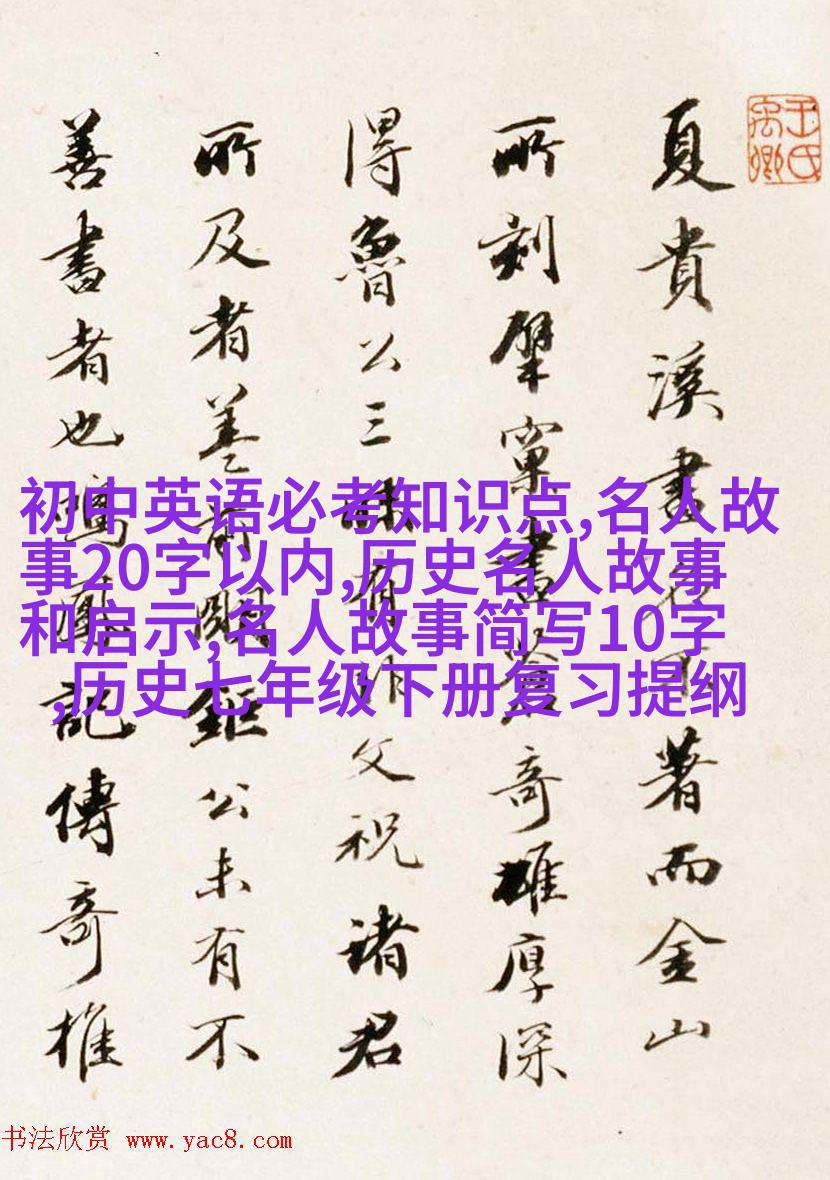 王氏禹卿
夏貴溪書名不著而金山
所刻擘窠書蒼奇雄厚深
得魯公三昧有非文祝諸君
所及者蓋前明鉅公未有不
善書者也鳴鳳記傳奇推
初中英语必考知识点,名人故
事20字以内,历史名人故事
和启示,名人故事简写10字
,历史七年级下册复习提纲
书法欣赏 www.yac8.com